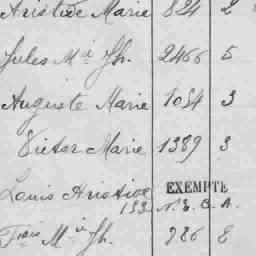 Aristide Marie 824 2
Jules Mie Jh. 2466 5
Auguste Marie 1054 3
Victor Marie 1389 3
Louis Aristide EXEMPTÉ
133 N.E.B.A.
Frois Mie Jh. 286 8